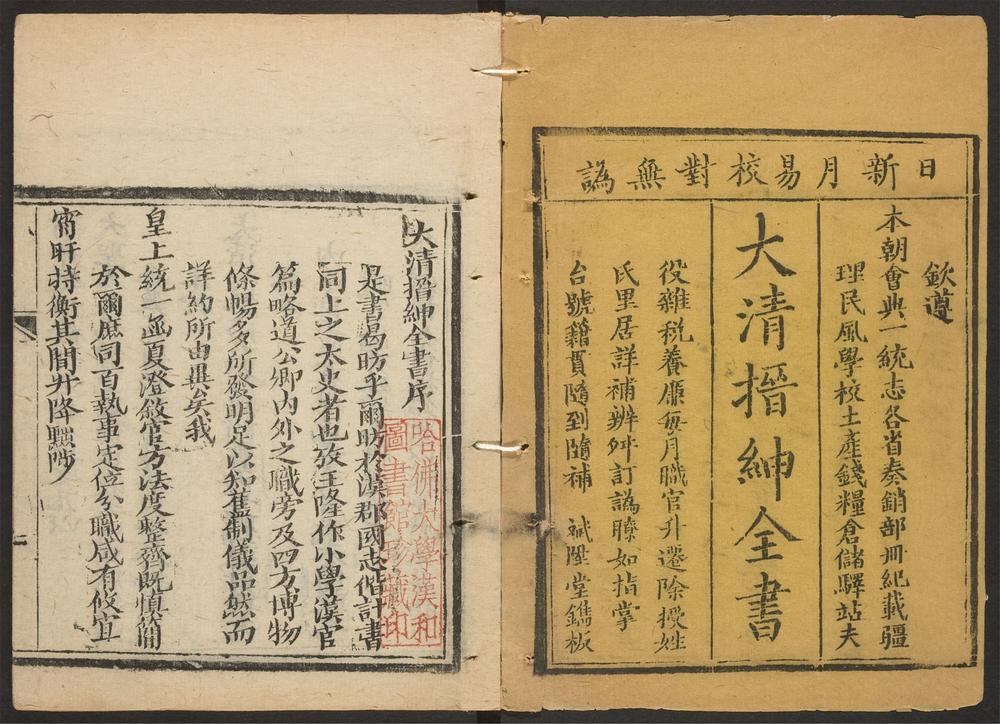 日新月易校對無譌
欽遵
本朝會典一統志各省奏銷部冊紀載疆
理民風學校土產錢糧倉儲驛站夫
大清搢紳全書
役雜稅養廉每月職官升遷除授姓
氏里居詳補辨舛訂譌瞭如指掌
台號籍貫隨到隨補 斌陞堂鐫板
大清搢紳全書序
是書曷昉乎爾昉於漢郡國志偕計書
同上之太史者也攷王隆作小學漢官
篇略道公卿內外之職旁及四方博物
條暢多所發明足以知舊制儀品然而
詳約所由異矣我
皇上統一函夏澄敘官方法度整齊既慎簡
於爾庶司百執事定位分職咸有攸宜
宵旰持衡其間升降黜陟
哈佛大學漢和
圖書館珍藏印